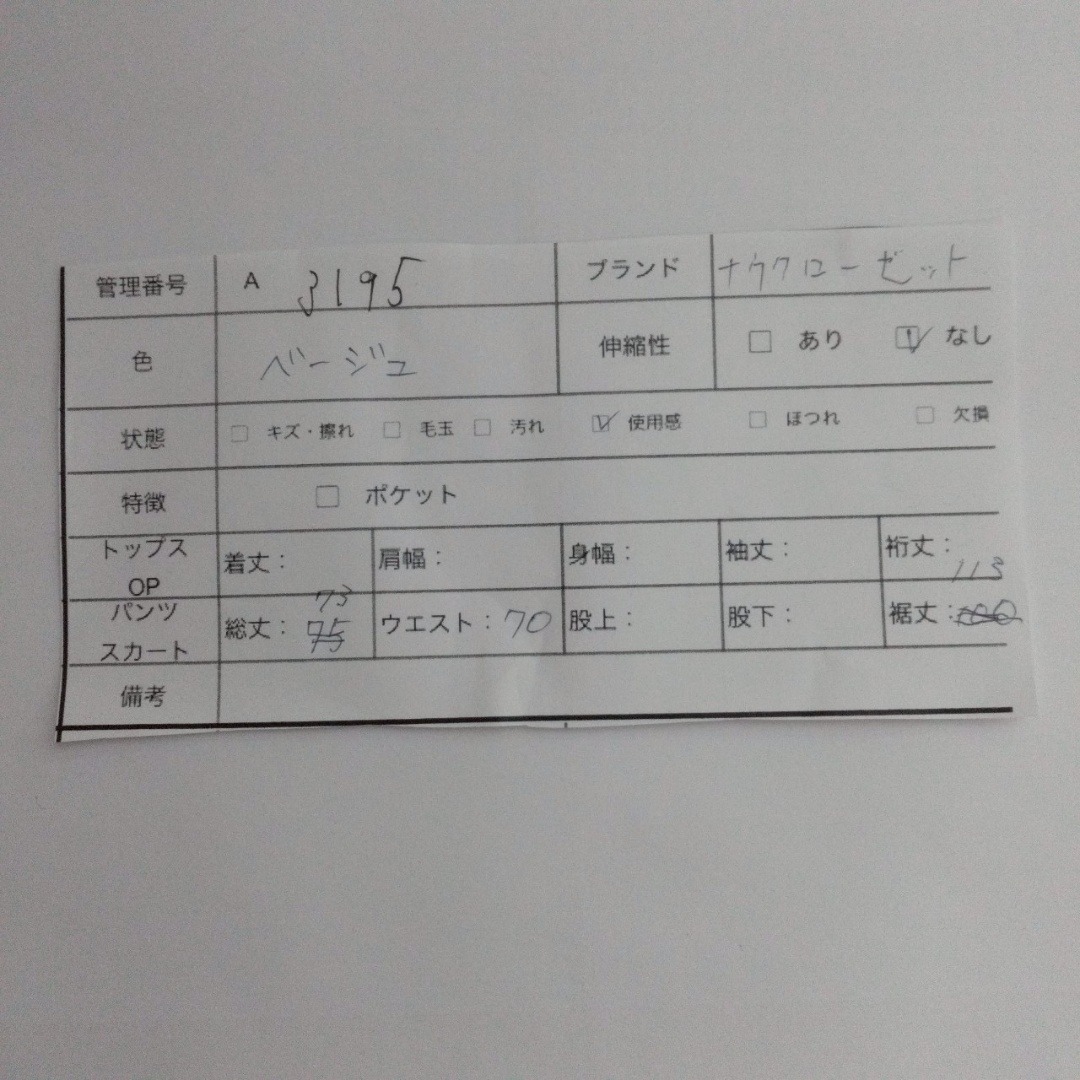 管理番号 A 3195 ブランド ナウクローゼット
色 ベージュ 伸縮性 □ あり ☑ なし
状態 □ キズ・擦れ □ 毛玉 □ 汚れ ☑ 使用感 □ ほつれ □ 欠損
特徴 □ ポケット
トップス
OP 着丈： 肩幅： 身幅： 袖丈： 裄丈：
73 113
パンツ
スカート 総丈：75 ウエスト：70 股上： 股下： 裾丈：
備考